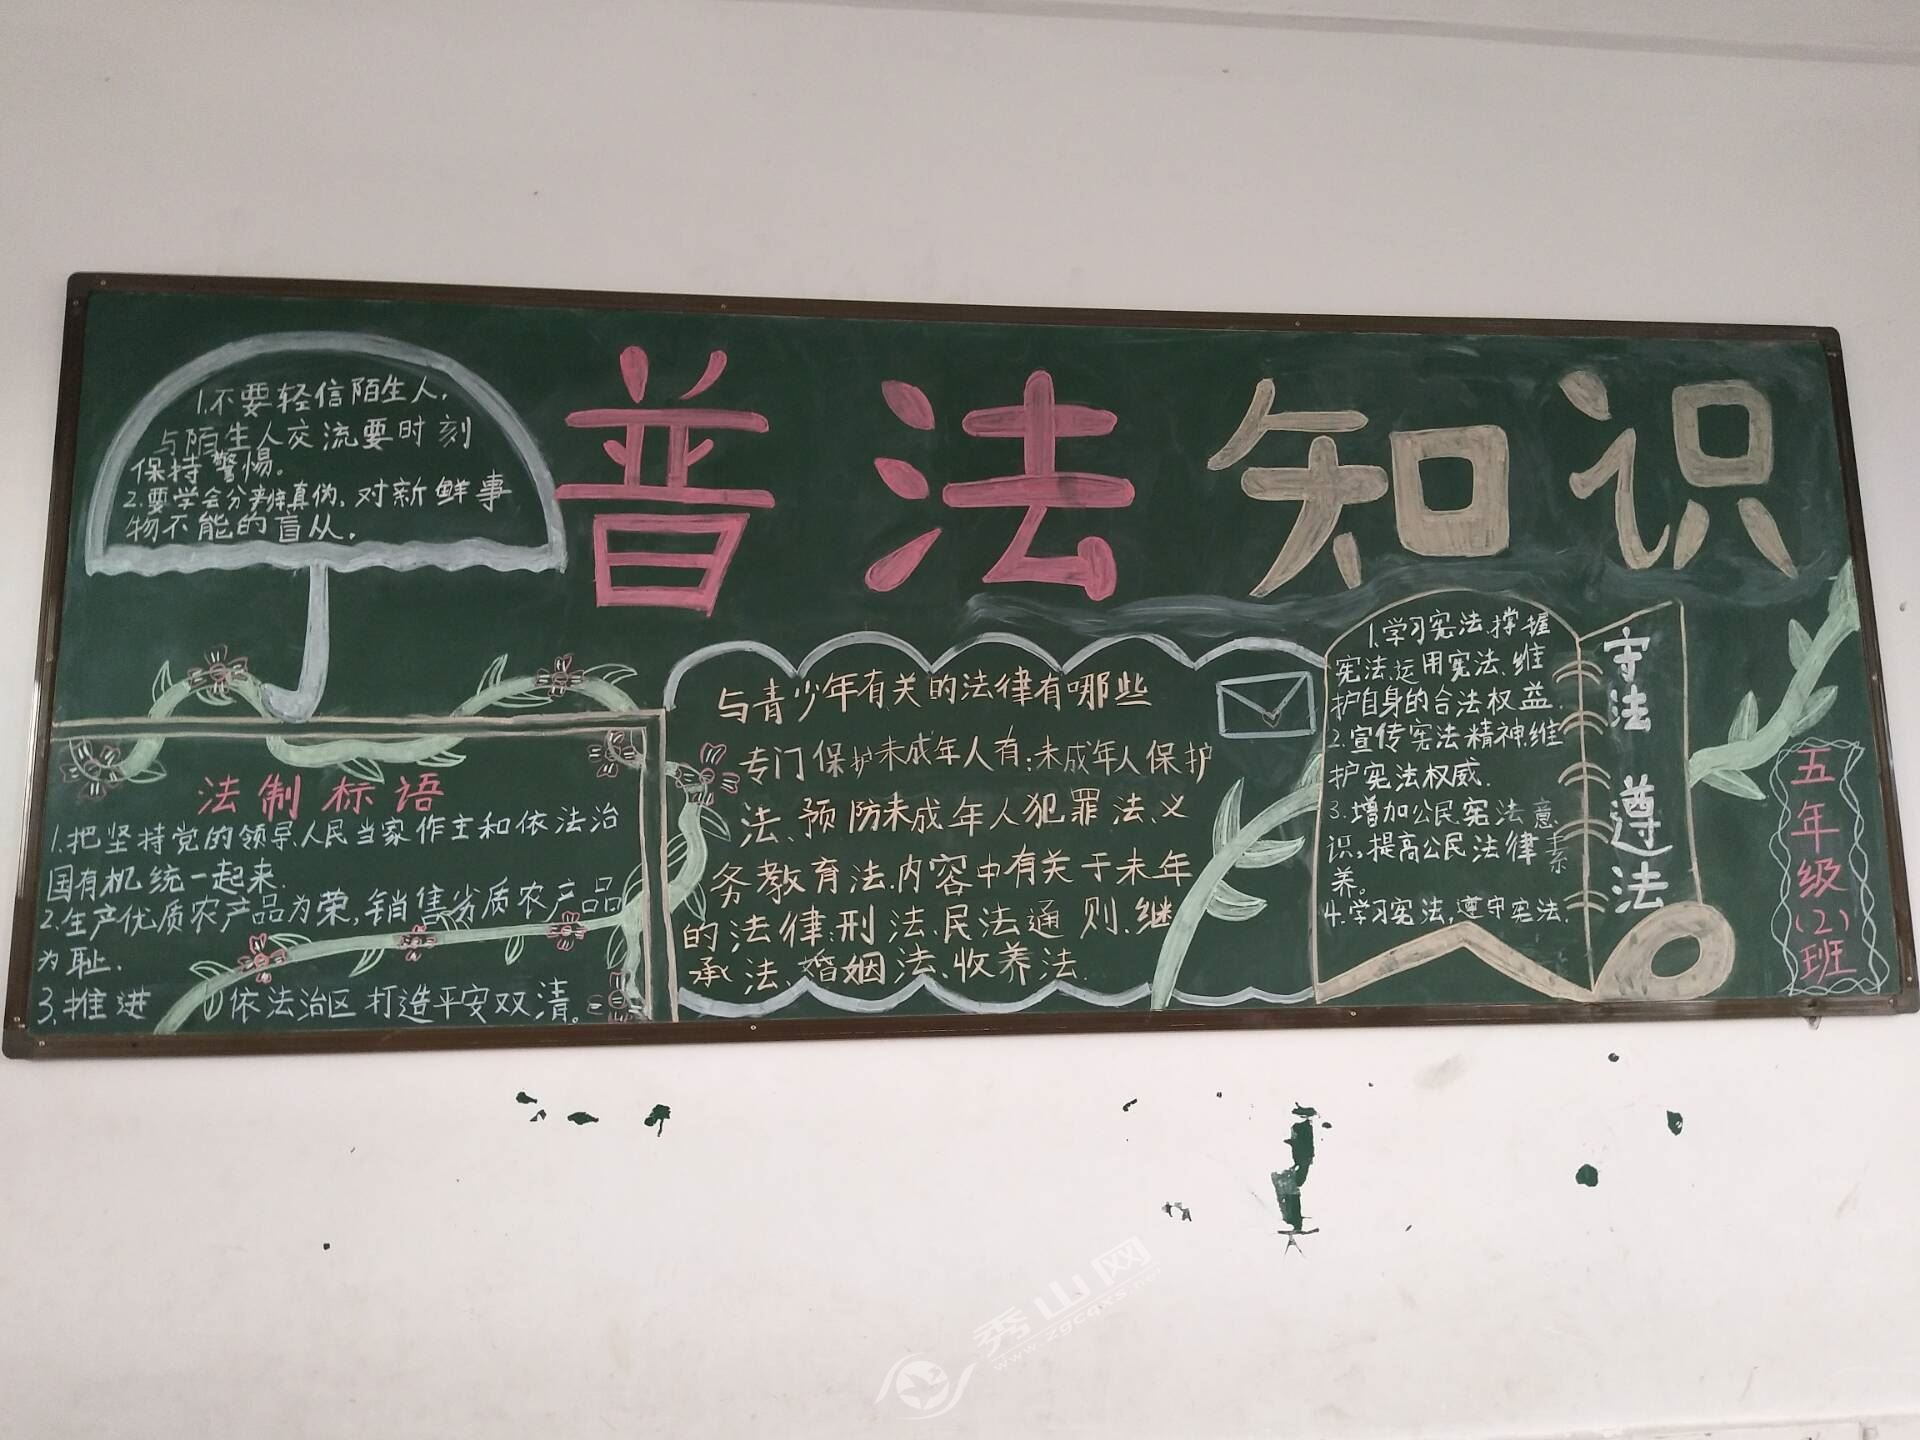 普法知识
1.不要轻信陌生人,
与陌生人交流要时刻
保持警惕。
2.要学会分辨真伪,对新鲜事
物不能的盲从.
法制标语
1.把坚持党的领导、人民当家作主和依法治
国有机统一起来.
2.生产优质农产品为荣,销售劣质农产品
为耻.
3.推进 依法治区 打造平安双清。
与青少年有关的法律有哪些
专门保护未成年人有:未成年人保护
法、预防未成年人犯罪法、义
务教育法.内容中有关于未年
的法律:刑法、民法通则、继
承法、婚姻法、收养法.
1.学习宪法、撑握
宪法、运用宪法、维
护自身的合法权益.
2.宣传宪法精神、维
护宪法权威.
3.增加公民宪法意
识,提高公民法律素
养。
4.学习宪法,遵守宪法.
守法 遵法
五年级(2)班
秀山网
www.zgcqxs.net